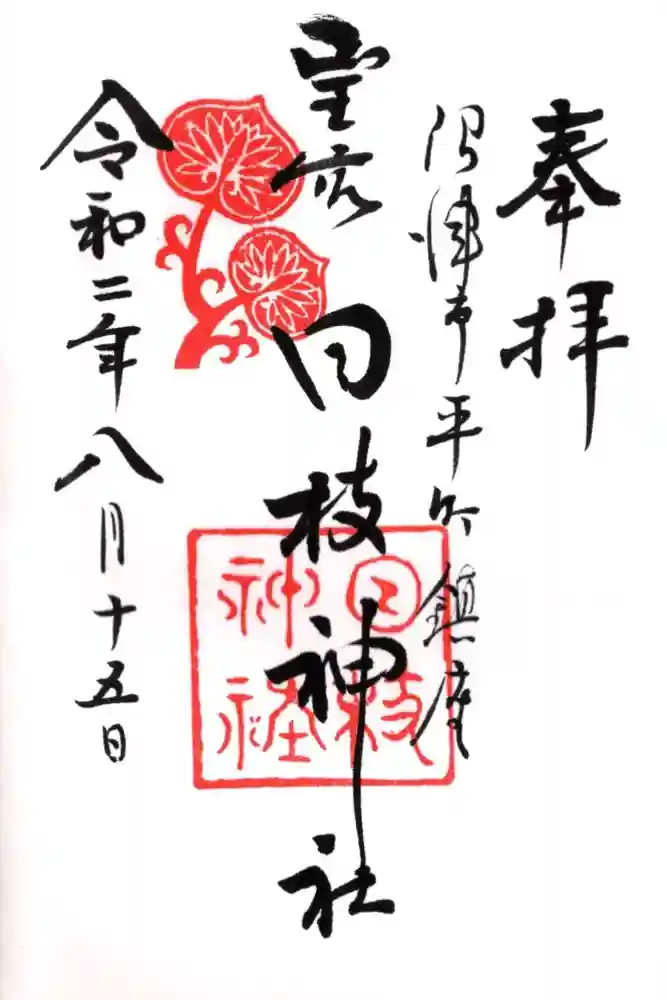 奉拝
沼津市平町鎮座
日枝神社
令和二年八月十五日
日枝
神社